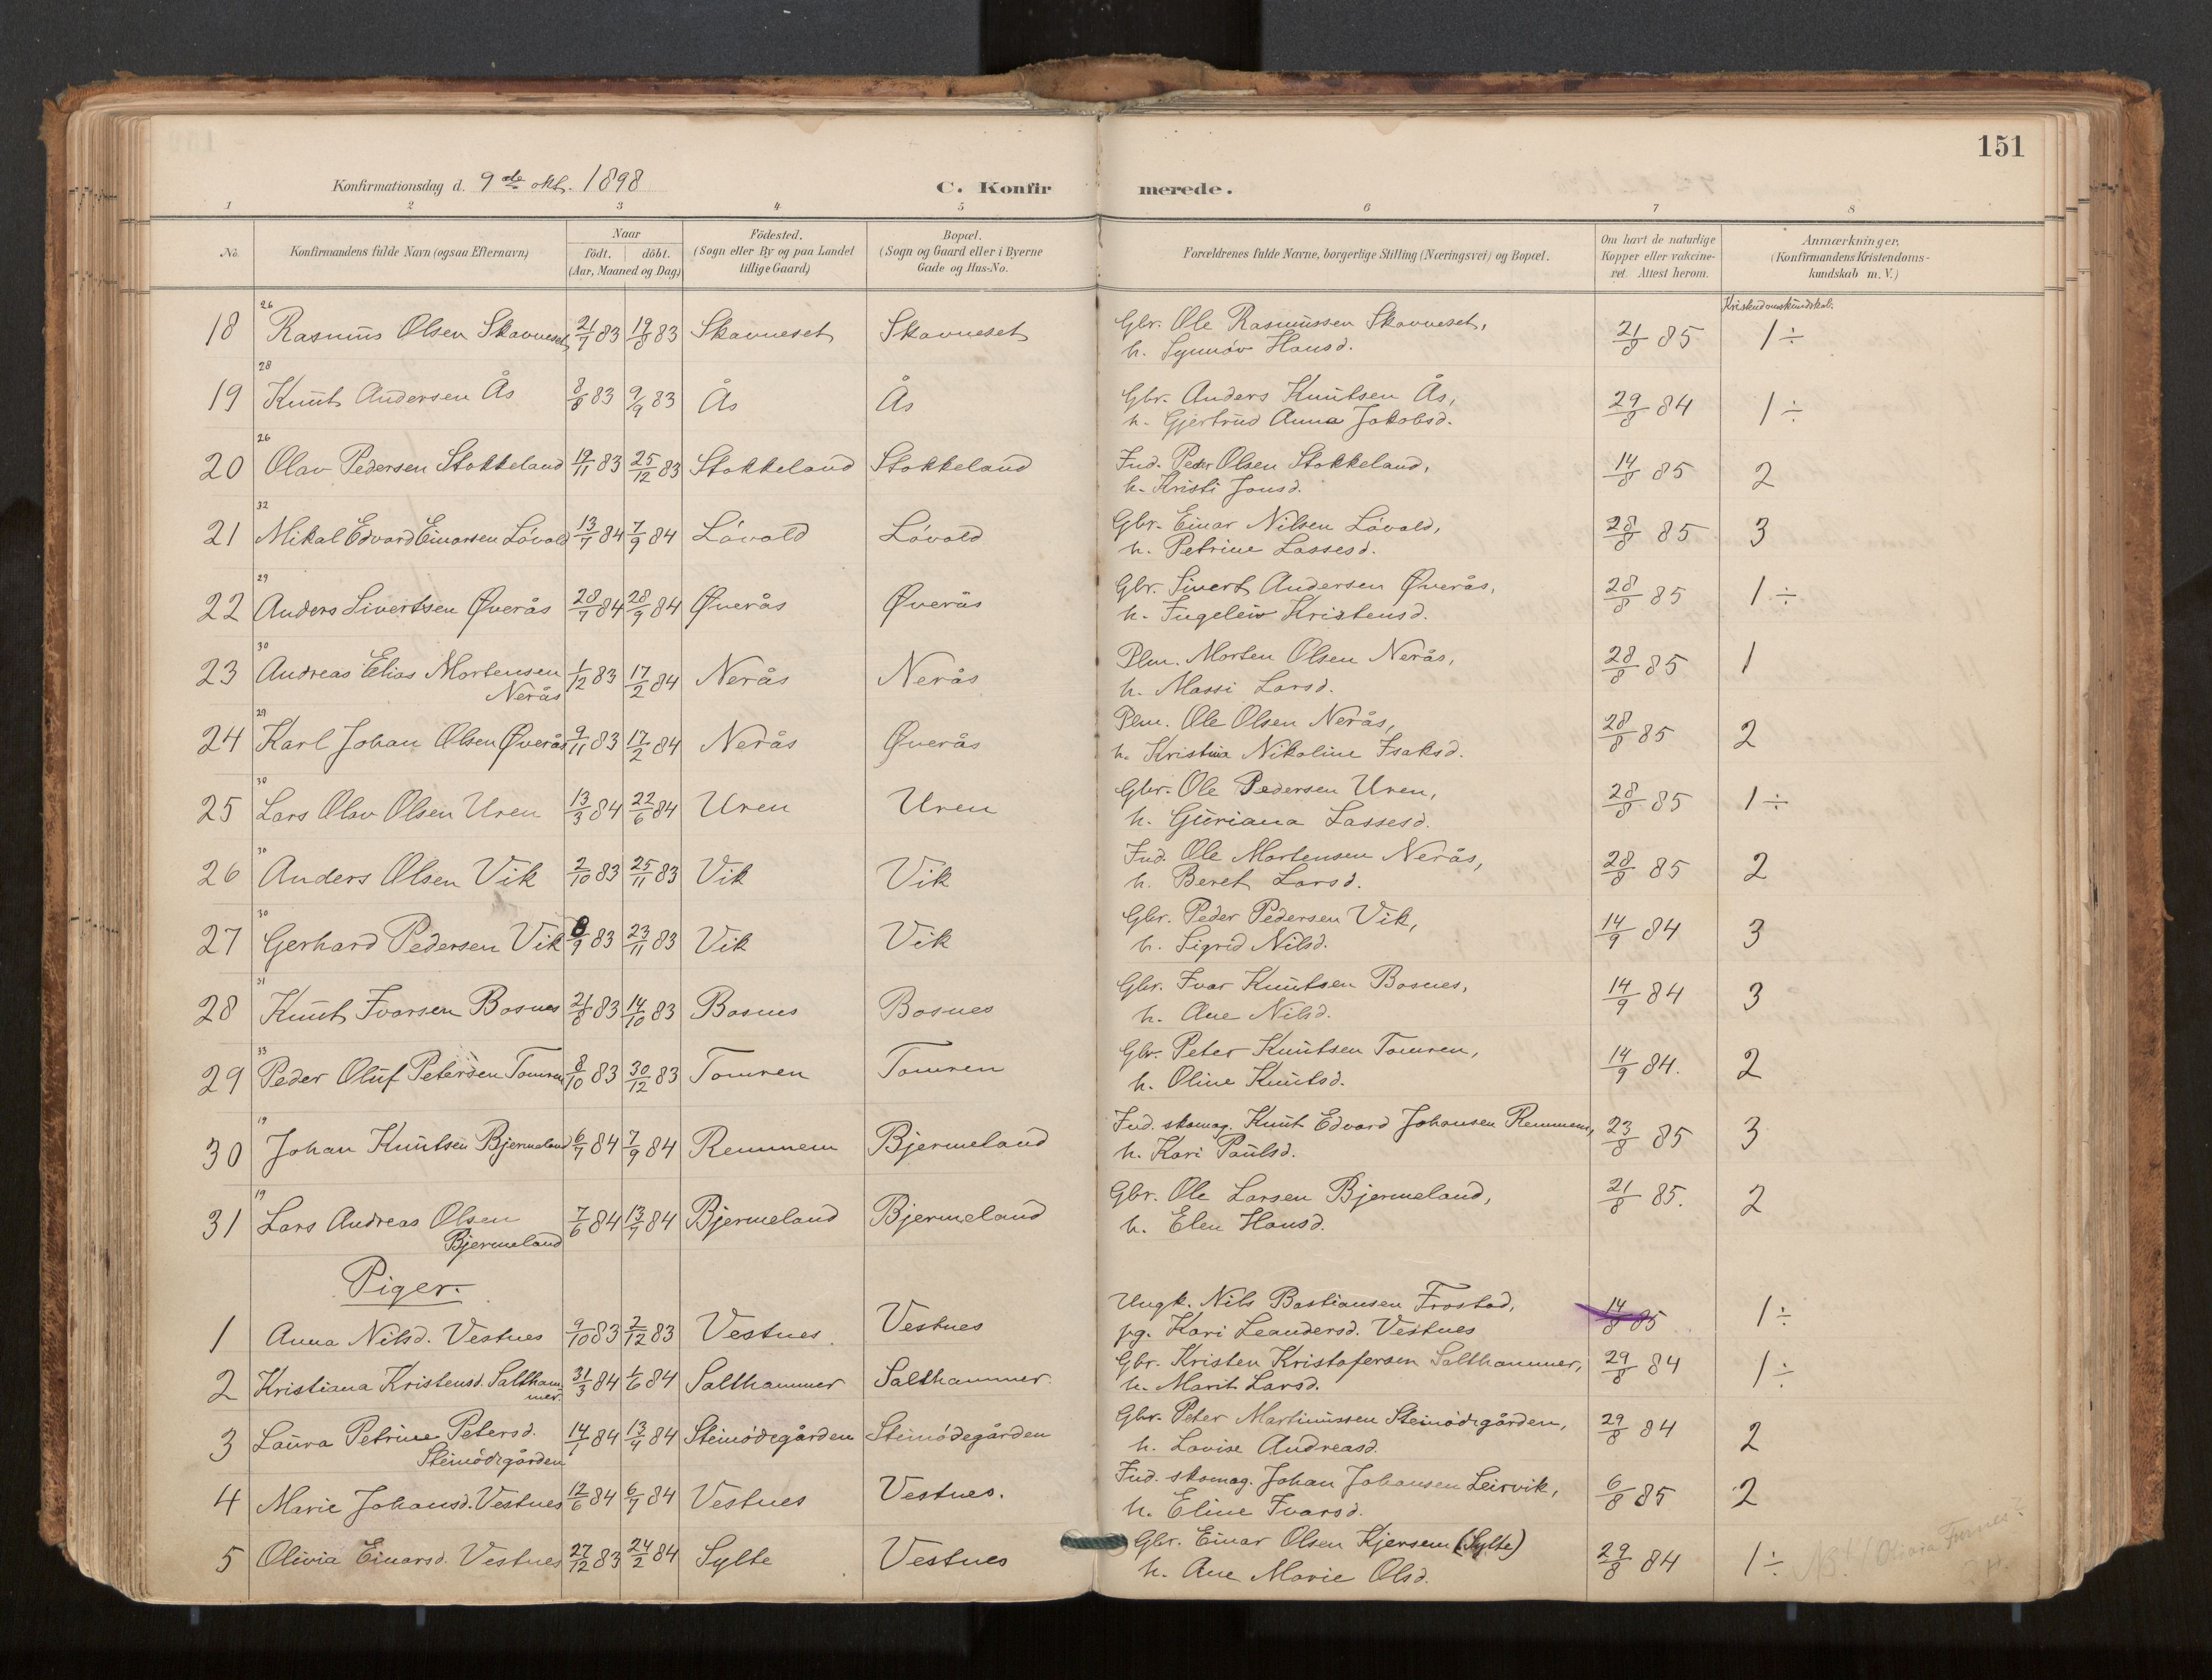 151
Konfirmationsdag d. 9de okt. 1898
C. Konfirmerede.
1 2 3 4 5 6 7 8
No. Konfirmandens fulde Navn (ogsaa Efternavn) Naar födt. döbt. (Aar, Maaned og Dag) Födested. (Sogn eller By og paa Landet tillige Gaard) Bopæl. (Sogn og Gaard eller i Byerne Gade og Hus-No. Forældrenes fulde Navne, borgerlige Stilling (Næringsvei) og Bopæl. Om havt de naturlige Kopper eller vakcineret. Attest herom. Anmærkninger. (Konfirmandens Kristendomskundskab m. V.)
Kristendomskundskab.
26
18 Rasmus Olsen Skavneset 21/7 83 19/8 83 Skavneset Skavneset Gbr. Ole Rasmussen Skavneset, 21/8 85 1÷
h. Synnöv Hansd.
28
19 Knut Andersen Ås 8/8 83 9/9 83 Ås Ås Gbr. Anders Knutsen Ås, 29/8 84 1÷
h. Gjertrud Anna Jakobsd.
26
20 Olav Pedersen Stokkeland 19/11 83 25/12 83 Stokkeland Stokkeland Ind. Peder Olsen Stokkeland, 14/8 85 2
h. Kristi Jonsd.
32
21 Mikal Edvard Einarsen Lövold 13/7 84 7/9 84 Lövold Lövold Gbr. Einar Nilsen Lövold, 28/8 85 3
h. Petrine Lassesd.
29
22 Anders Sivertsen Øverås 28/7 84 28/9 84 Øverås Øverås Gbr. Sivert Andersen Øverås, 28/8 85 1÷
h. Ingeleiv Kristensd.
30
23 Andreas Elias Mortensen 1/12 83 17/2 84 Nerås Nerås Plm. Morten Olsen Nerås, 28/8 85 1
Nerås h. Massi Larsd.
29
24 Karl Johan Olsen Øverås 9/11 83 17/2 84 Nerås Øverås Plm. Ole Olsen Nerås, 28/8 85 2
h. Kristina Nikoline Isaksd.
30
25 Lars Olav Olsen Uren 13/3 84 22/6 84 Uren Uren Gbr. Ole Pedersen Uren, 28/8 85 1÷
h. Guriana Lassesd.
30
26 Anders Olsen Vik 2/10 83 25/11 83 Vik Vik Ind. Ole Mortensen Nerås, 28/8 85 2
h. Beret Larsd.
30
27 Gerhard Pedersen Vik 8/9 83 23/11 83 Vik Vik Gbr. Peder Pedersen Vik, 14/9 84 3
h. Sigrid Nilsd.
31
28 Knut Ivarsen Bosnes 21/8 83 14/10 83 Bosnes Bosnes Gbr. Ivar Knutsen Bosnes, 14/9 84 3
h. Ane Nilsd.
33
29 Peder Oluf Petersen Tomren 8/10 83 30/12 83 Tomren Tomren Gbr. Peter Knutsen Tomren, 14/9 84. 2
h. Oline Knutsd.
19
30 Johan Knutsen Bjermeland 6/7 84 7/9 84 Remmem Bjermeland Ind. skomag. Knut Edvard Johansen Remmem, 23/8 85 3
h. Kari Paulsd.
19
31 Lars Andreas Olsen 7/6 84 13/7 84 Bjermeland Bjermeland Gbr. Ole Larsen Bjermeland, 21/8 85. 2
Bjermeland h. Elen Hansd.
Piger.
1 Anna Nilsd. Vestnes 9/10 83 2/12 83 Vestnes. Vestnes Ungk. Nils Bastiansen Frostad, 14/8 85 1÷
pg. Kari Leandersd. Vestnes
2 Kristiana Kristensd. Saltham- 31/3 84 1/6 84 Salthammer Salthammer. Gbr. Kristen Kristofersen Salthammer, 29/8 84 1÷
mer. h. Marit Larsd.
3 Laura Petrine Petersd. 14/1 84 13/4 84 Steinödegården Steinödegården Gbr. Peter Martinussen Steinödegården, 29/8 84 2
Steinödegården h. Lovise Andreasd.
4 Marie Johansd. Vestnes 12/6 84 6/7 84 Vestnes Vestnes. Ind. skomag. Johan Johansen Leirvik, 6/8 85 2
h. Eline Ivarsd.
5 Olivia Einarsd. Vestnes 27/12 83 24/2 84 Sylte Vestnes Gbr. Einar Olsen Kjersem (Sylte) 29/8 84 1÷ NB!
h. Ane Marie Olsd.